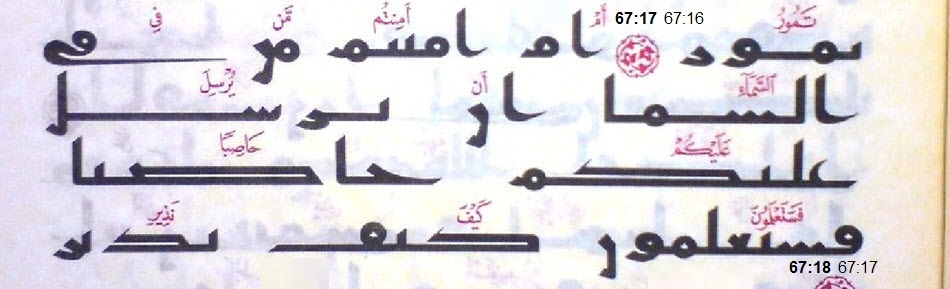 تَمُورُ 67:16 67:17 أَمْ أَمِنتُم مَّن فِي
تمور ام امنتم من في
ٱلسَّمَآءِ أَن يُرْسِلَ
السما ان يرسل
عَلَيْكُمْ حَاصِبًا
عليكم حاصبا
فَسَتَعْلَمُونَ كَيْفَ نَذِيرِ
فستعلمون كيف نذير
67:18 67:17